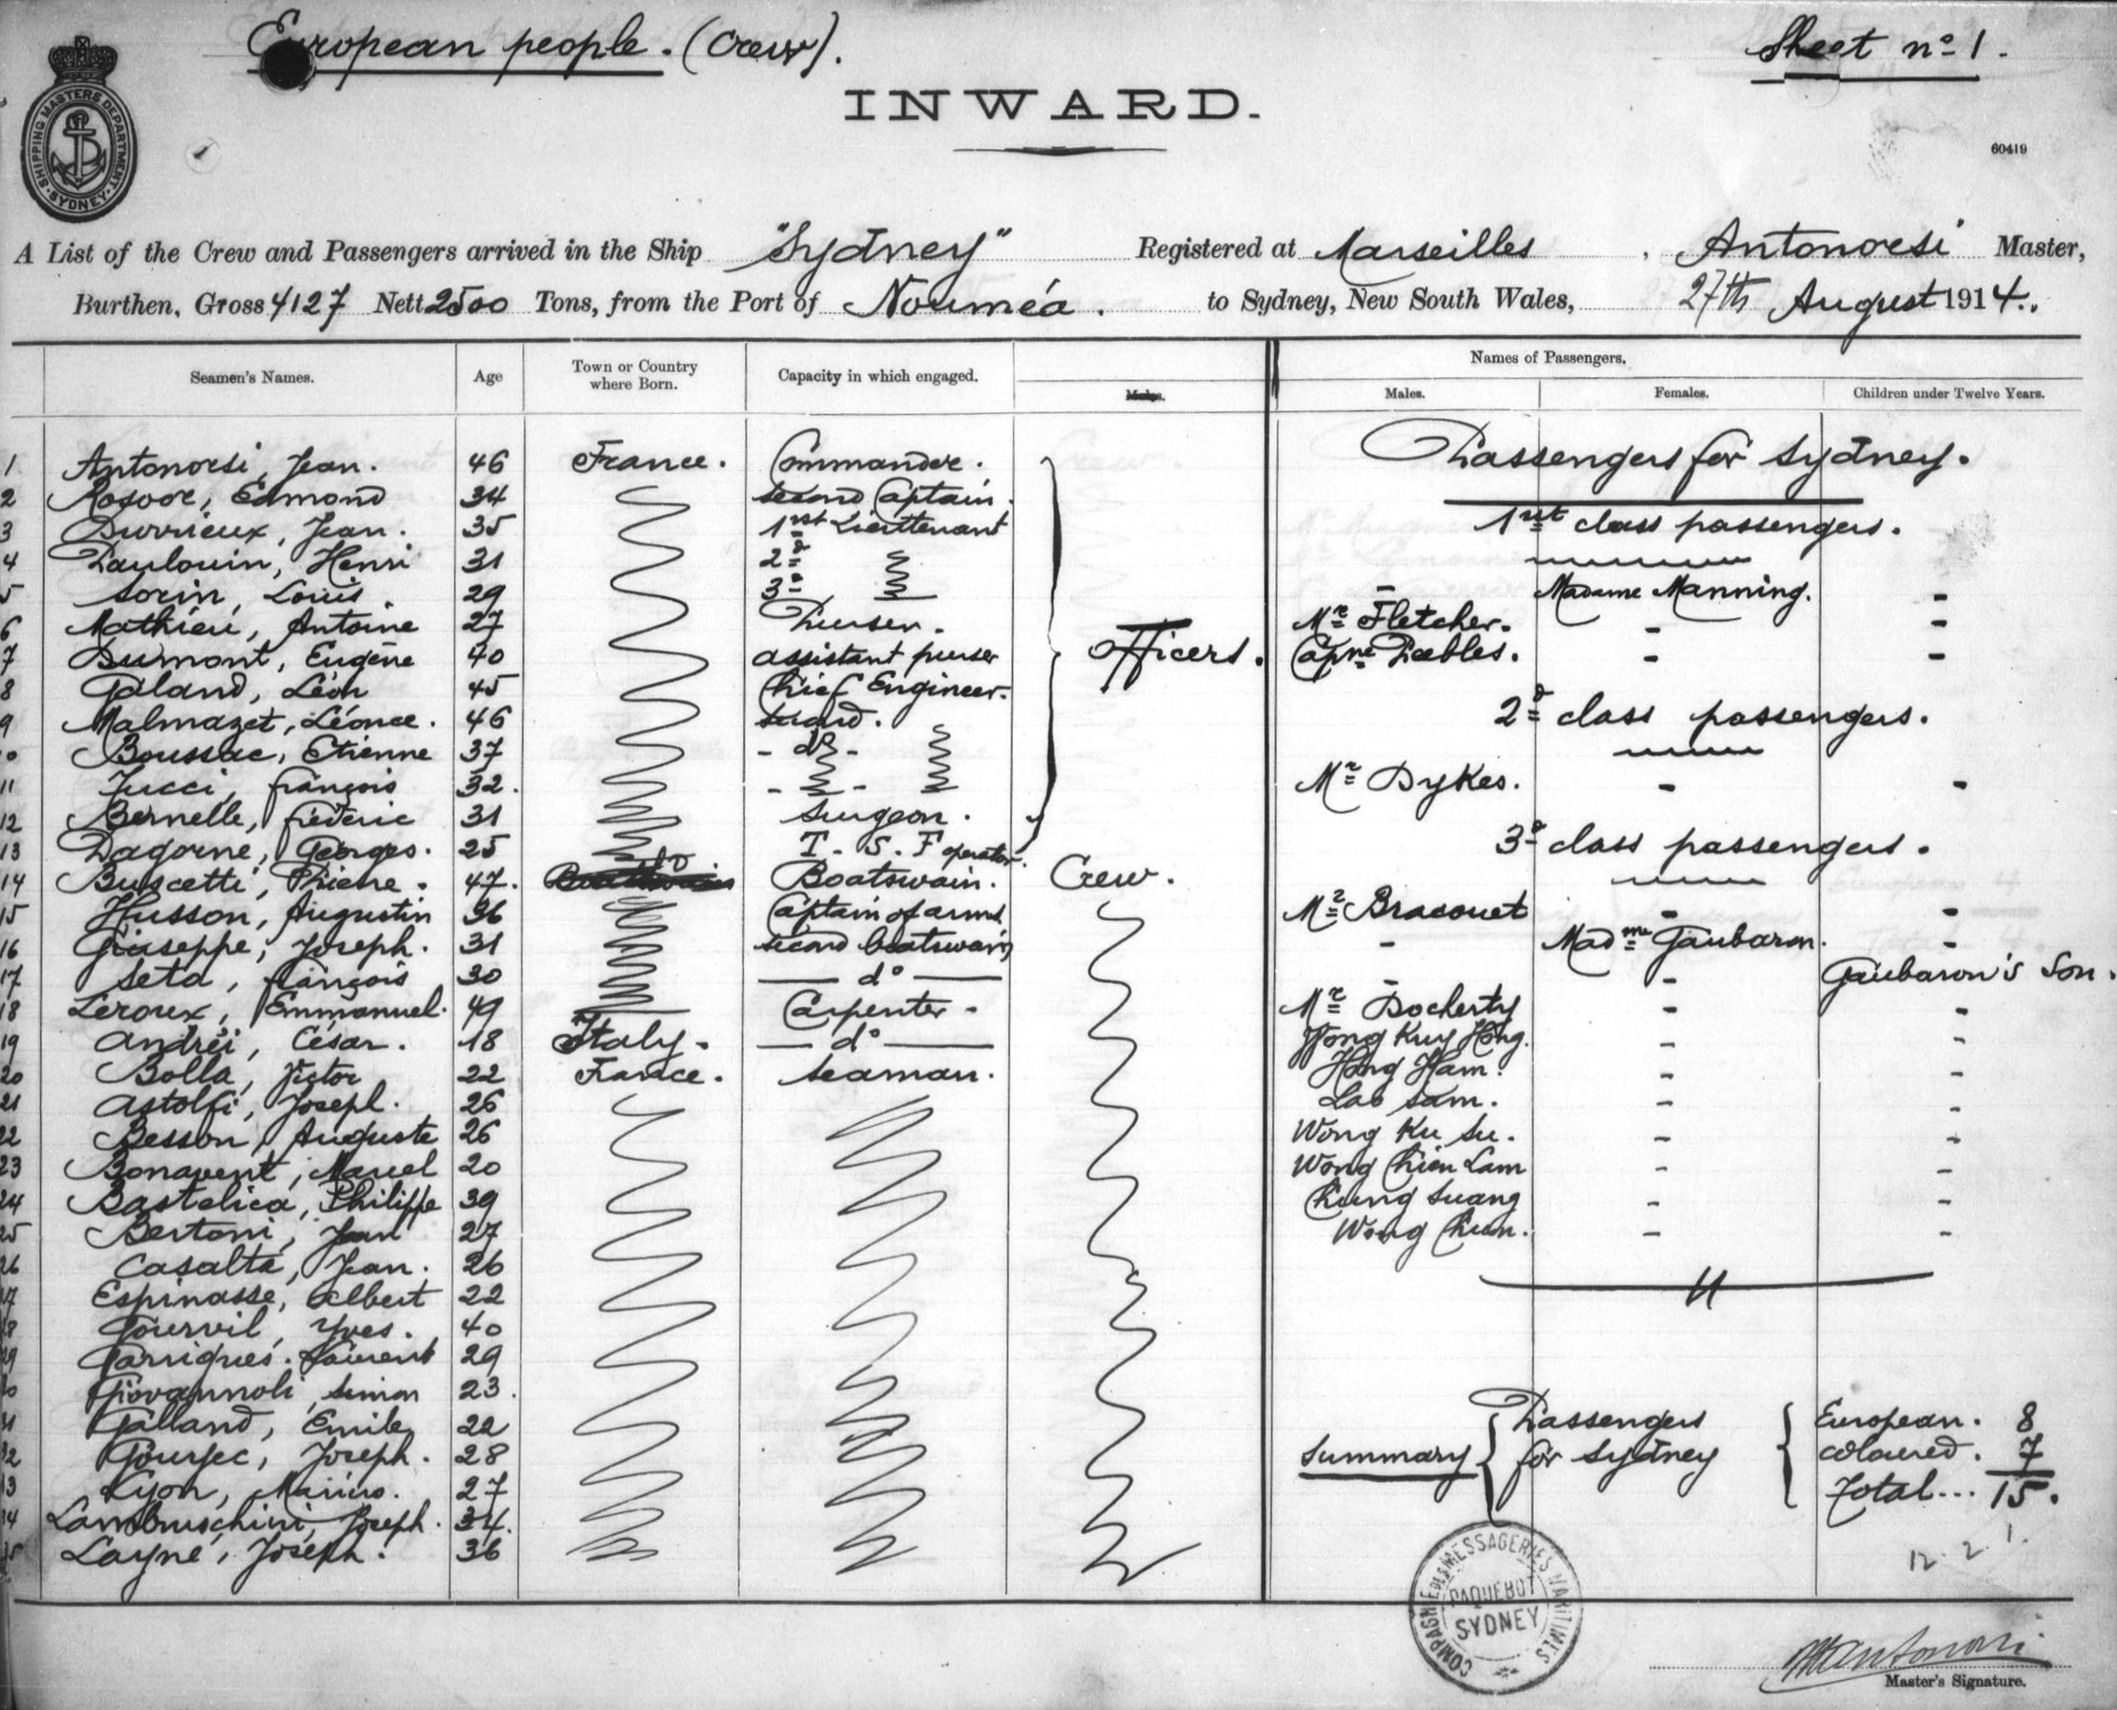 European people. (Crew).
Sheet nº 1.
INWARD.
SHIPPING MASTERS DEPARTMENT SYDNEY
60419
A List of the Crew and Passengers arrived in the Ship "Sydney" Registered at Marseilles, Antonorsi Master,
Burthen, Gross 4127 Nett 2500 Tons, from the Port of Nouméa. to Sydney, New South Wales, 27th August 1914.
Seamen's Names. Age Town or Country where Born. Capacity in which engaged.
Names of Passengers.
Males. Females. Children under Twelve Years.
1 Antonorsi, Jean. 46 France. Commander.
2 Edmond 34 second Captain.
3 Durrieux, Jean. 35 1rst Lieuttenant
4 Paulouin, Henri 31 2d
5 Sorin, Louis. 29 3d
6 Mathieu, Antoine 27 Purser.
7 Dumont, Eugène 40 assistant purser
8 Galand, Léon 45 Chief Engineer.
9 Malmazet, Léonce. 46 second.
10 Boussac, Etienne 37 - dº -
11 Jucci, françois 32.
12 Bernelle, fréderic 31 surgeon.
13 Dagorne, Georges. 25 T. S. F operator.
Officers.
14 Buscetti, Pierre. 47. dº Boatswain. Crew.
15 Husson, Augustin 36 Captain of arms
16 Giuseppe, Joseph. 31 second boatswain
17 Seta, françois 30 dº
18 Leroux, Emmanuel. 49 Carpenter.
19 Andréi, César. 18 Italy. dº
20 Bolla, Victor 22 France. seaman.
21 Astolfi, Joseph. 26
22 Besson, Auguste 26
23 Bonavent, Marcel 20
24 Bastelica, Philippe 39
25 Bertoni, Jean 27
26 Casalta, Jean. 26
27 Espinasse, Albert 22
28 Gourvil, Yves. 40
29 Garrigues. Laurent 29
30 Giovannoli, simon 23.
31 Galland, Emile 22
32 Joseph. 28
33 Lyon, Marius. 27
34 Lambruschini, Joseph. 34.
35 Layné, Joseph. 36
Passengers for Sydney.
1rst class passengers.
- Madame Manning. -
Mr Fletcher. - -
Capne Peebles. - -
2d class passengers.
Mr Dykes. - -
3d class passengers.
Mr Bracouet - -
- Madme Gaubaron. -
- - Gaubaron's Son.
Mr Docherty - -
Wong Kuy Hong. - -
Hong Ham. - -
Lao Sam. - -
Wong Ku Su. - -
Wong Chien Lam - -
Chung Suang - -
Wong Chun. - -
Summary { Passengers for Sydney { European. 8
coloured. 7
Total... 15.
12. 2. 1.
COMPAGNIE DES MESSAGERIES MARITIMES
PAQUEBOT
SYDNEY
Antonorsi
Master's Signature.